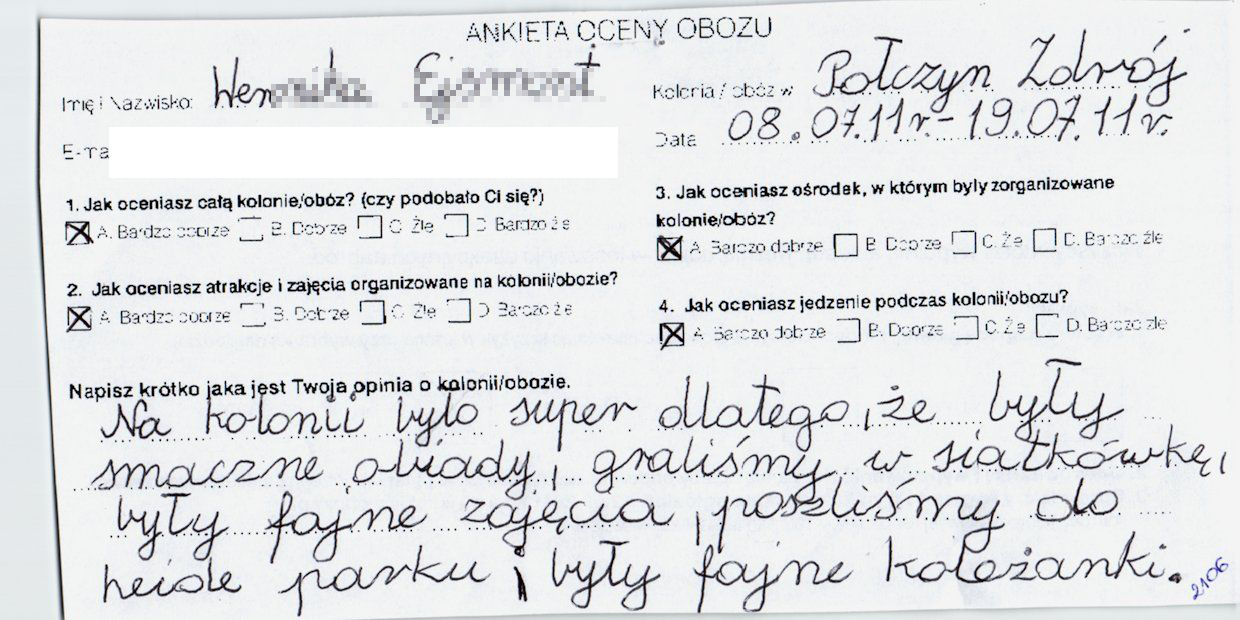 ANKIETA OCENY OBOZU
Imię i Nazwisko:
Kolonia / obóz w Połczyn Zdrój
Data 08.07.11r.-19.07.11r.
E-ma
1. Jak oceniasz całą kolonie/obóz? (czy podobało Ci się?)
A. Bardzo dobrze B. Dobrze C. Źle D. Bardzo źle
2. Jak oceniasz atrakcje i zajęcia organizowane na kolonii/obozie?
A. Bardzo dobrze B. Dobrze C. Źle D. Bardzo źle
3. Jak oceniasz ośrodek, w którym byly zorganizowane
kolonie/obóz?
A. Bardzo dobrze B. Dobrze C. Źle D. Bardzo źle
4. Jak oceniasz jedzenie podczas kolonii/obozu?
A. Bardzo dobrze B. Dobrze C. Źle D. Bardzo źle
Napisz krótko jaka jest Twoja opinia o kolonii/obozie.
Na kolonii było super dlatego, że były
smaczne obiady, graliśmy w siatkówkę,
były fajne zajęcia, poszliśmy do
heide parku i były fajne koleżanki.
2106